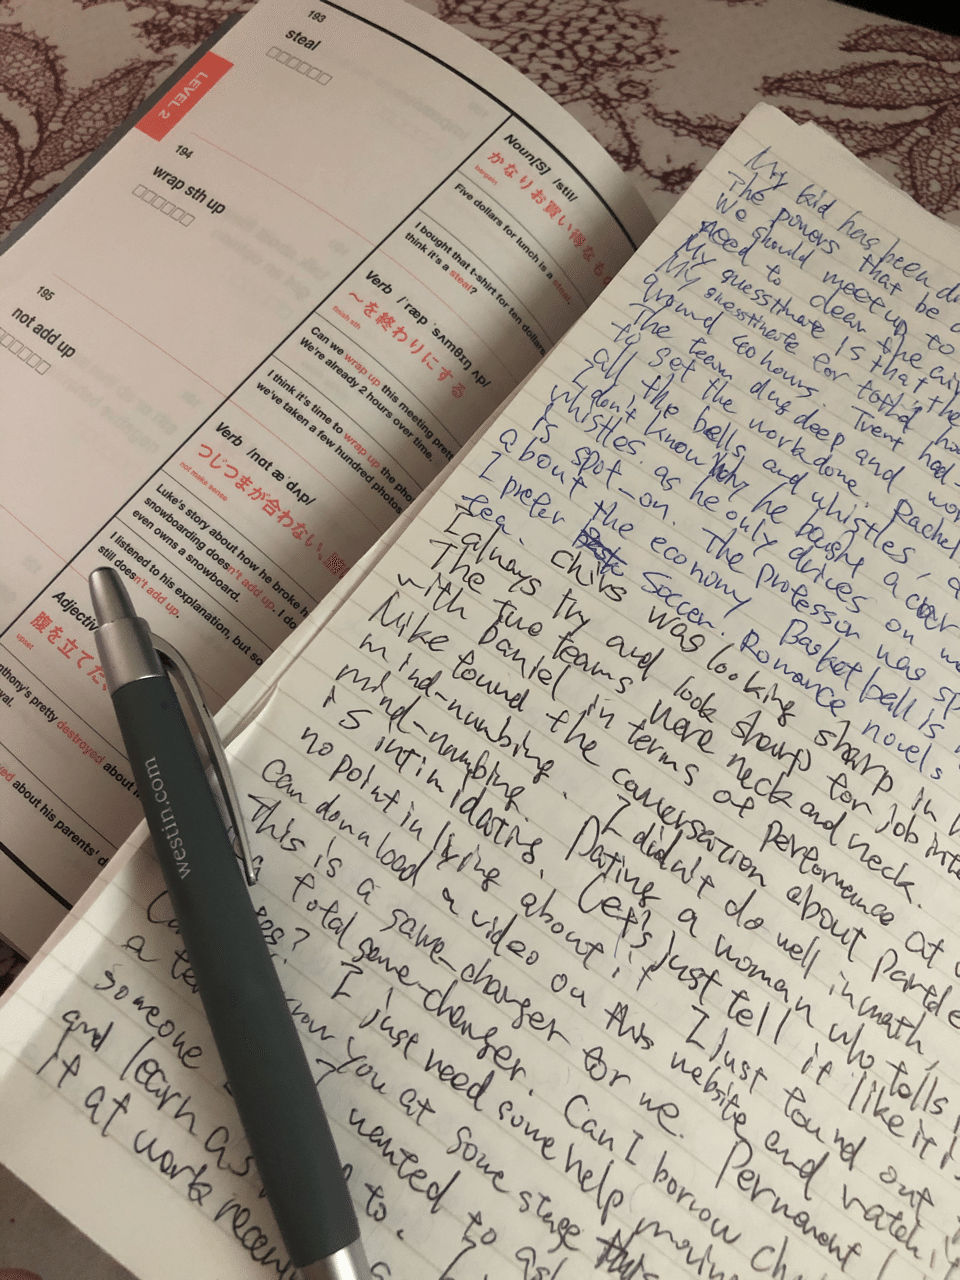 193
steal
LEVEL 2
194
wrap sth up
195
not add up
Noun[S] /stiːl/
かなりお買い得なもの
bargain
Five dollars for lunch is a steal.
I bought that t-shirt for ten dollars
think it's a steal?
Verb /ˈræp ˈsʌmθɪŋ ʌp/
～を終わりにする
finish sth
Can we wrap up this meeting pret
We're already 2 hours over time.
I think it's time to wrap up the pho
we've taken a few hundred photos
Verb /nɑt æˈdʌp/
つじつまが合わない、
not make sense
Luke's story about how he broke h
snowboarding doesn't add up. I do
even owns a snowboard.
I listened to his explanation, but so
still doesn't add up.
Adjectiv
腹を立てた、
upset
nthony's pretty destroyed about h
val.
yed about his parents' d
westin.com
My kid has been d
The powers that be d
We should meet up to
need to clear the air
My guesstimate is that the
My guesstimate for total ho
around 40 hours. Trent had
The team dug deep and wor
to get the work done. Rachel
all the bells and whistles,
I don't know why he bought a car
whistles as he only drives on w
is spot-on. The professor was sp
about the economy. Basketball is
I prefer soccer. Romance novels
tea. Chris was looking sharp in h
I always try and look sharp for job inte
The two teams were neck and neck.
with Daniel in terms of performance at
Mike found the conversation about
mind-numbing. I didn't do well in math,
mind-numbing. Dating a woman who tells
is intimidating. Let's just tell it like it i
no point in lying about it. I just found out
can download a video on this website and watch it
This is a game-changer for me. Permanent
a total game-changer. Can I borrow
I just need some help moving
a you at some stage
someone I wanted to
and learn as to.
it at work recen